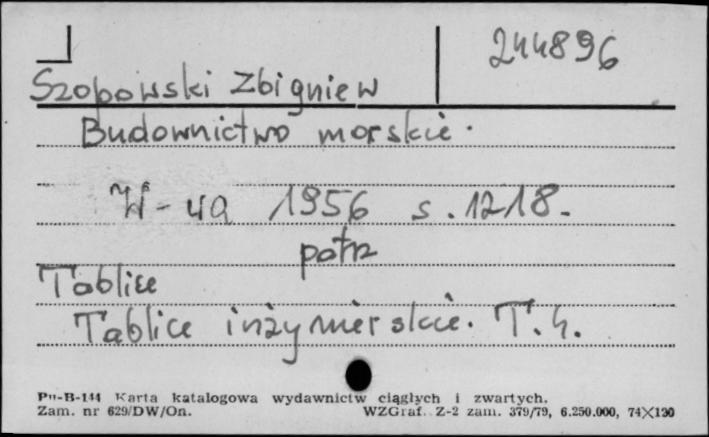 244896
Szopowski Zbigniew
Budownictwo morskie.
W-wa 1956 s. 1218.
patrz
Tablice
Tablice inżynierskie. T. 4.
Pu-B-144 Karta katalogowa wydawnictw ciągłych i zwartych.
Zam. nr 629/DW/On. WZGraf. Z-2 zam. 379/79, 6.250.000, 74×120